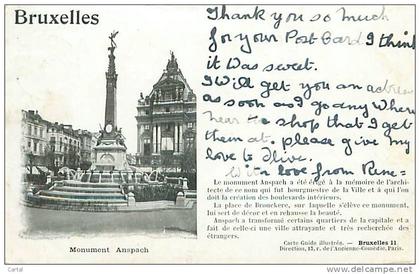 Bruxelles
Thank you so much
for your Post Card. I think
it was sweet.
I will get you an actress
as soon as I go any where
near the shop that I get
them at. please give my
love to Olive.
With love from Rene=
Le monument Anspach a été érigé à la mémoire de l'archi-
tecte de ce nom qui fut bourgmestre de la Ville et à qui l'on
doit la création des boulevards intérieurs.
La place de Brouckere, sur laquelle s'élève ce monument,
lui sert de décor et en rehausse la beauté.
Anspach a transformé certains quartiers de la capitale et a
fait de celle-ci une ville attrayante et très recherchée des
étrangers.
Monument Anspach
Carte Guide illustrée. — Bruxelles 11
Direction, 13, r. de l'Ancienne-Comédie, Paris.
(c)CARTAL
http://www.delcampe.net